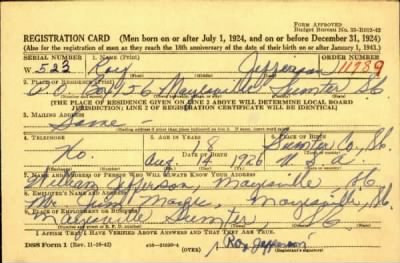 FORM APPROVED
Budget Bureau No. 33-R012-42
REGISTRATION CARD (Men born on or after July 1, 1924, and on or before December 31, 1924)
(Also for the registration of men as they reach the 18th anniversary of the date of their birth on or after January 1, 1943.)
SERIAL NUMBER 1. NAME (Print) ORDER NUMBER
W 523 Roy Jefferson 11989
(First) (Middle) (Last)
2. PLACE OF RESIDENCE (Print)
P.O. Box 156 Mayesville Sumter SC
[THE PLACE OF RESIDENCE GIVEN ON LINE 2 ABOVE WILL DETERMINE LOCAL BOARD
JURISDICTION; LINE 2 OF REGISTRATION CERTIFICATE WILL BE IDENTICAL]
3. MAILING ADDRESS
Same
4. TELEPHONE
No. 18 Sumter Co.
Aug. 14 1926 U.S.A.
7. NAME AND ADDRESS OF PERSON WHO WILL ALWAYS KNOW YOUR ADDRESS
William Jefferson, Mayesville SC
8. EMPLOYER'S NAME AND ADDRESS
Mr. Mayesville, SC
9. PLACE OF EMPLOYMENT OR BUSINESS
Mayesville Sumter SC
I AFFIRM THAT I HAVE VERIFIED ABOVE ANSWERS AND THAT THEY ARE TRUE.
DSS Form 1 (Rev. 11-16-42) (OVER) Roy Jefferson